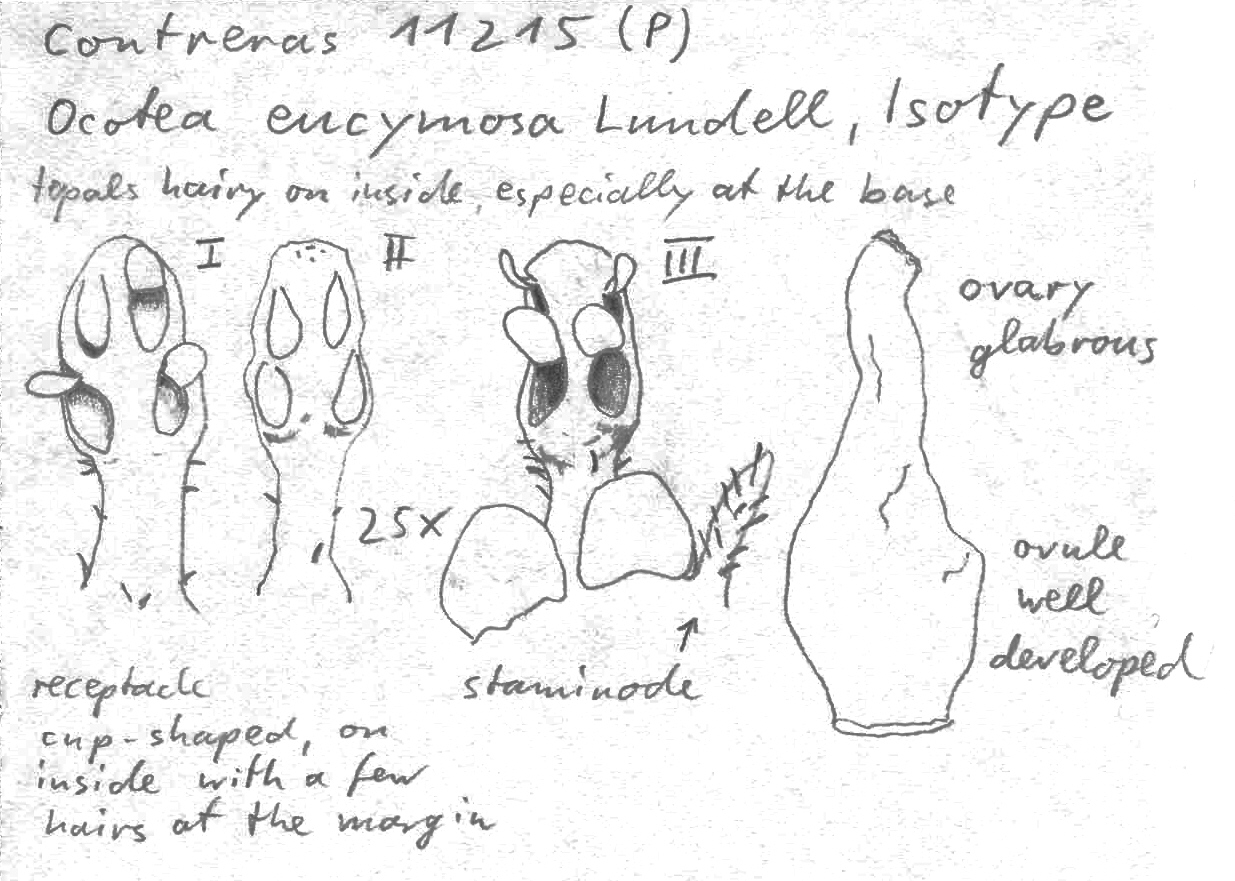 Contreras 11215 (P)
Ocotea eucymosa Lundell, Isotype
tepals hairy on inside, especially at the base
I
II
III
ovary
glabrous
25x
ovule
well
developed
staminode
receptacle
cup-shaped, on
inside with a few
hairs at the margin